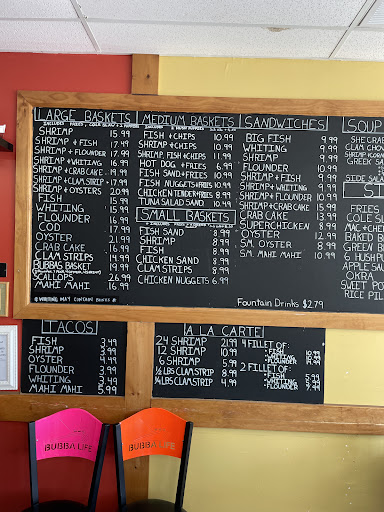 LARGE BASKETS
SHRIMP 15.99
SHRIMP + FISH 17.49
SHRIMP + FLOUNDER 17.99
SHRIMP + WHITING 16.99
SHRIMP + CRAB CAKE 19.99
SHRIMP + CLAM STRIP 17.99
SHRIMP + OYSTERS 20.99
FISH 15.99
WHITING 15.99
FLOUNDER 16.99
COD 17.99
OYSTER 21.99
CRAB CAKE 16.99
CLAM STRIPS 14.99
BUBBAS BASKET 19.99
SCALLOPS 26.99
MAHI MAHI 16.99
WHITING MAY CONTAIN BONES
MEDIUM BASKETS
FISH + CHIPS 10.99
SHRIMP + CHIPS 10.99
SHRIMP, FISH + CHIPS 11.99
HOT DOG + FRIES 6.99
FISH SAND + FRIES 10.99
FISH NUGGETS + FRIES
CHICKEN TENDER + FRIES
TUNA SALAD SAND 10.99
SMALL BASKETS
FISH SAND 8.99
SHRIMP 8.99
FISH 8.99
CHICKEN SAND 8.99
CLAM STRIPS 8.99
CHICKEN NUGGETS 6.99
SANDWICHES
BIG FISH 9.99
WHITING 9.99
SHRIMP 9.99
FLOUNDER 10.99
SHRIMP + FISH 9.99
SHRIMP + WHITING 9.99
SHRIMP + FLOUNDER 10.99
SHRIMP + CRAB CAKE 15.99
CRAB CAKE 13.99
SUPERCHICKEN 8.99
OYSTER 12.99
SM. OYSTER 8.99
SM. MAHI MAHI 10.99
Fountain Drinks $2.79
SOUP
SHECRAB
CLAM CHOW
SHRIMP
GREEK SA
SIDE SALA
FRIES
COLE SL
MAC + CHE
BAKED B
GREEN B
6 HUSH PU
APPLE SAU
OKRA
SWEET PO
RICE PIL
TACOS
FISH 3.49
SHRIMP 3.99
OYSTER 4.99
FLOUNDER 3.99
WHITING 3.49
MAHI MAHI 5.99
A LA CARTE
24 SHRIMP 21.99
12 SHRIMP 10.99
6 SHRIMP 5.99
1/2 LBS CLAM STRIP 8.99
1/4 LBS CLAM STRIP 4.99
4 FILLET OF:
FISH 10.99
WHITING
FLOUNDER
2 FILLET OF:
FISH
WHITING
FLOUNDER 7.99
BUBBA LIFE
BUBBA LIFE